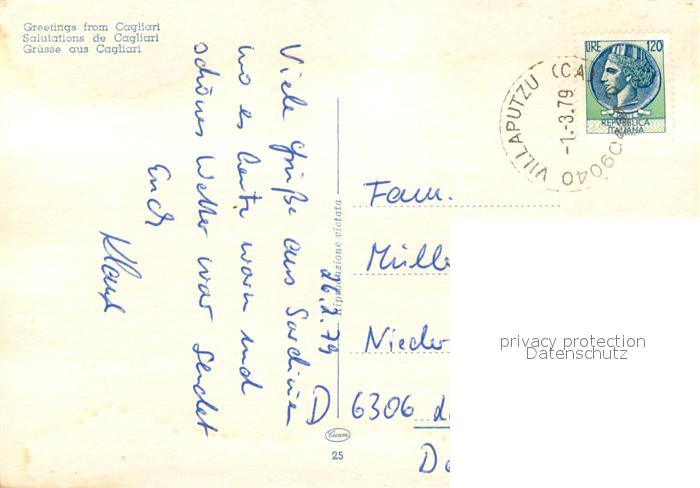 Greetings from Cagliari
Salutations de Cagliari
Grüsse aus Cagliari
26.2.79
Viele Grüße aus Sardinien
wo es heute warm und
schönes Wetter war sendet
Euch
Klaus
Riproduzione vietata
25
LIRE 120
REPVBBLICA
ITALIANA
09040 VILLAPUTZU (CA)
-1.-3.79
Fam.
Mülle
Nieder
D 6306
privacy protection
Datenschutz